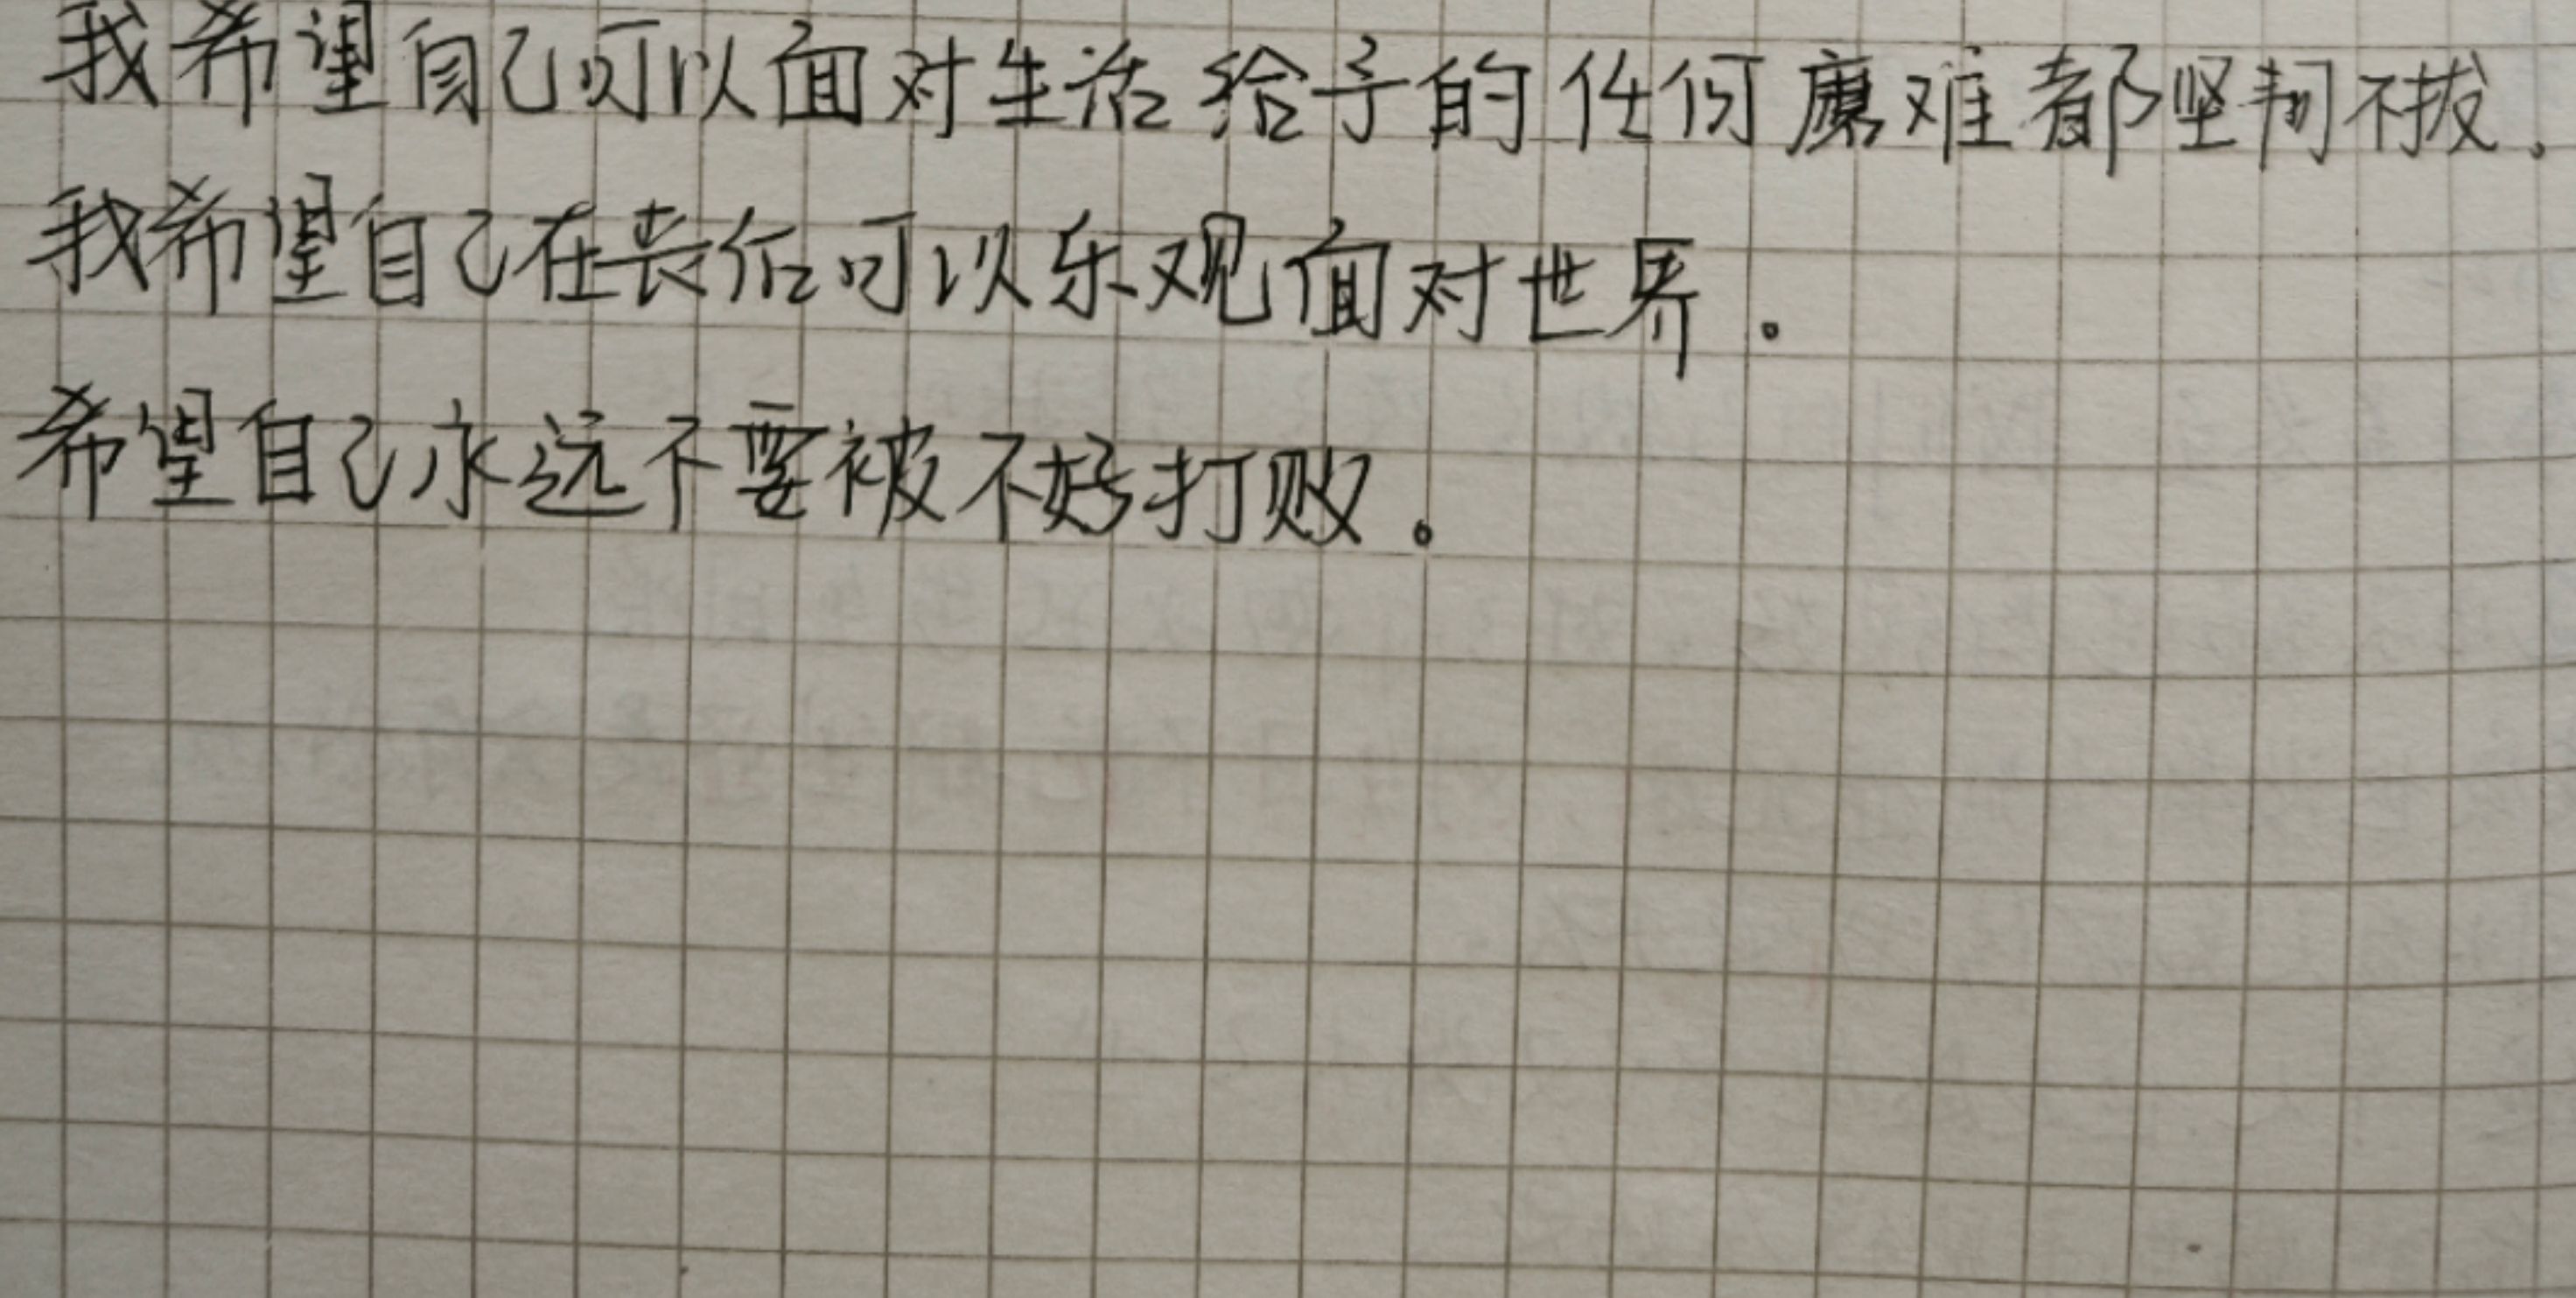 我希望自己可以面对生活给予的任何磨难都坚韧不拔。
我希望自己在丧后可以乐观面对世界。
希望自己永远不要被不好打败。